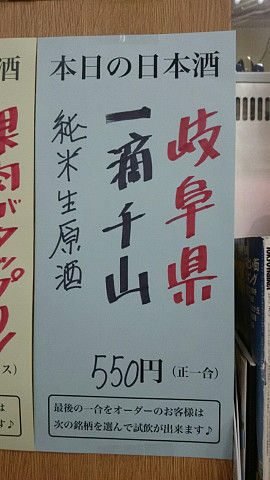 本日の日本酒
岐阜県
一滴千山
純米生原酒
550円(正一合)
最後の一合をオーダーのお客様は
次の銘柄を選んで試飲が出来ます♪
酒
果肉がタップリ
ス)
は
す♪